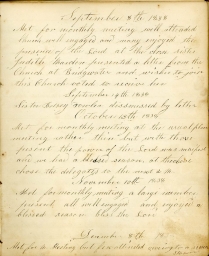 September 8th 1838
Met for monthly meeting well attended
church well engaged and many enjoyed the
presence of the Lord at the close sister
Judith Thurston presented a letter from the
Church at Bridgwater and wishes to join
this Church voted to receive her
September 19th 1838
Sister Betsey dismissed by letter
October 13th 1838
Met for monthly meeting at the usual place
meeting rather thin but with those
present the power of the Lord was manifest
and we had a blessed season, at
chose the delegates to the
November 10th 1838
Met for monthly meeting a large number
present, all well engaged and enjoyed a
blessed season bless the Lord
December 8th
Met for M Meeting but few attended owing to a